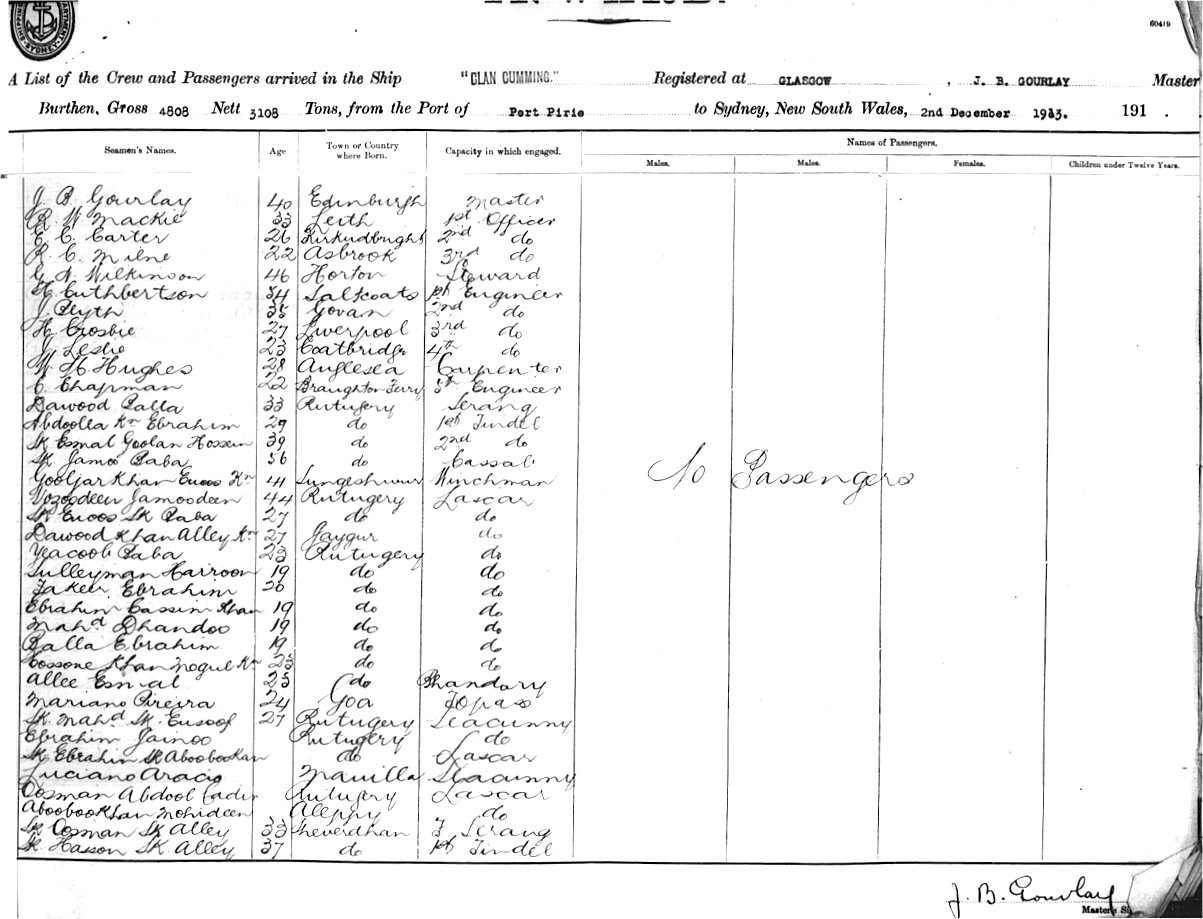 60419
A List of the Crew and Passengers arrived in the Ship "CLAN CUMMING." Registered at GLASGOW, J. B. GOURLAY Master
Burthen, Gross 4808 Nett 3108 Tons, from the Port of Port Pirie to Sydney, New South Wales, 2nd December 1913. 191 .
Names of Passengers.
Seamen's Names. Age Town or Country where Born. Capacity in which engaged. Males. Males. Females. Children under Twelve Years.
J. B. Gourlay 40 Edinburgh Master
R. W. Mackie 33 Leith 1st Officer
E. C. Carter 26 Kirkudbught 2nd do
R. C. Milne 22 Asbrook 3rd do
G. A. Wilkinson 46 Horton Steward
H. Cuthbertson 34 Saltcoats 1st Engineer
J. Blyth 35 Govan 2nd do
H. Crosbie 27 Liverpool 3rd do
J. Leslie 23 Coatbridge 4th do
W. H. Hughes 28 Anglesea Carpenter
C. Chapman 22 Braughton Ferry 5th Engineer
Dawood Balla 33 Rutugery Serang
Abdoolla Kn Ebrahim 29 do 1st Tindel
Sk Esmal Goolan Hossein 39 do 2nd do
Sk Jamoo Baba 56 do Cassab
Gooljar Khan Euoos Kn 41 Sungeshwur Winchman
No Passengers
Vozosdeen Jamoodeen 44 Rutugery Lascar
Sk Euoos Sk Baba 27 do do
Dawood Khan Alley Kn 27 Jaygur do
Yeacoob Baba 23 Rutugery do
Sulleyman Harroon 19 do do
Fakeer Ebrahim 20 do do
Ebrahim Cassim Khan 19 do do
Mahd Dhandoo 19 do do
Balla Ebrahim 19 do do
Cossone Khan Mogul Kn 23 do do
Allee Esmal 25 do Bhandary
Mariano Pireira 24 Goa Topass
Sk. Mahd Sk. Eusoof 27 Rutugery Seacunny
Ebrahim Jainoo Rutugery do
Sk Ebrahim Sk Aboobookan do Lascar
Luciano Aracio Manilla Seacunny
Oosman Abdool Cader Rutugery Lascar
Aboobookhan Mohideen Aleppy do
Sk Oosman Sk Alley 33 Sheverdhan F Serang
Sk Hasson Sk Alley 37 do 1st Tindel
J. B. Gourlay